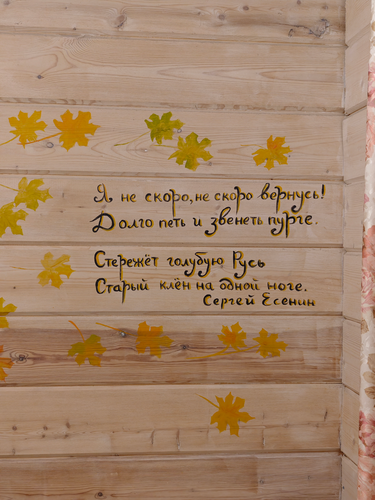 Я не скоро, не скоро вернусь!
Долго петь и звенеть пурге.
Стережёт голубую Русь
Старый клён на одной ноге.
Сергей Есенин